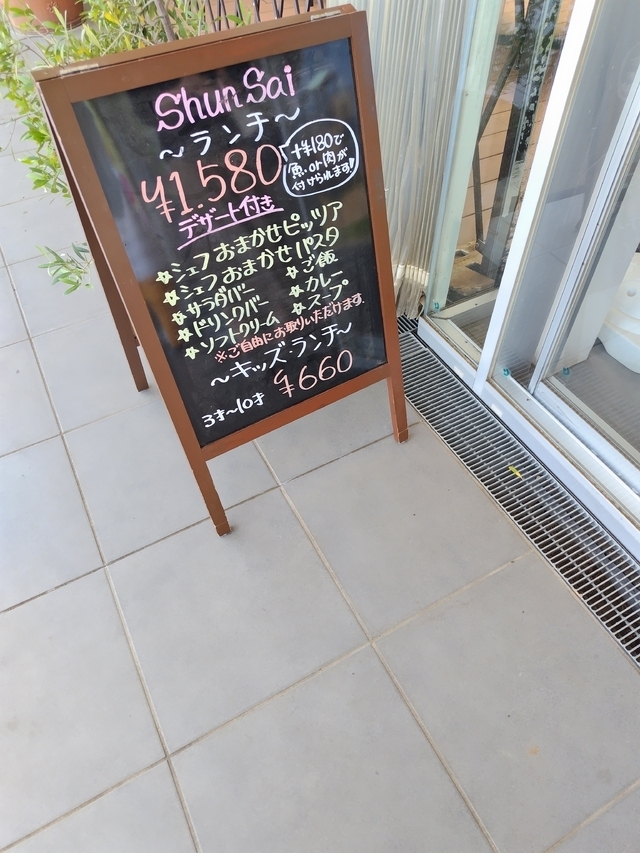 Shun Sai
～ランチ～
¥1.580
+¥180で
魚or肉が
付けられます!
デザート付き
☆シェフおまかせピッツア
☆シェフおまかせパスタ
☆サラダバー ☆ご飯
☆ドリンクバー ☆カレー
☆ソフトクリーム ☆スープ
※ご自由にお取りいただけます.
～キッズ・ランチ～
3才～10才 ¥660